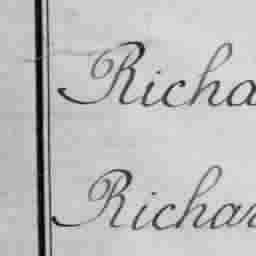 Richa
Richar